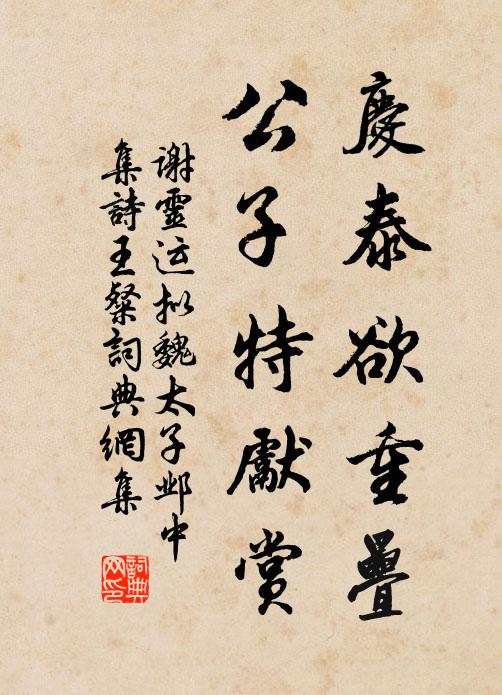 慶泰欲重疊
公子特獻賞
謝靈运拟魏太子邺中
集詩王粲詞典網集
詞典
网印